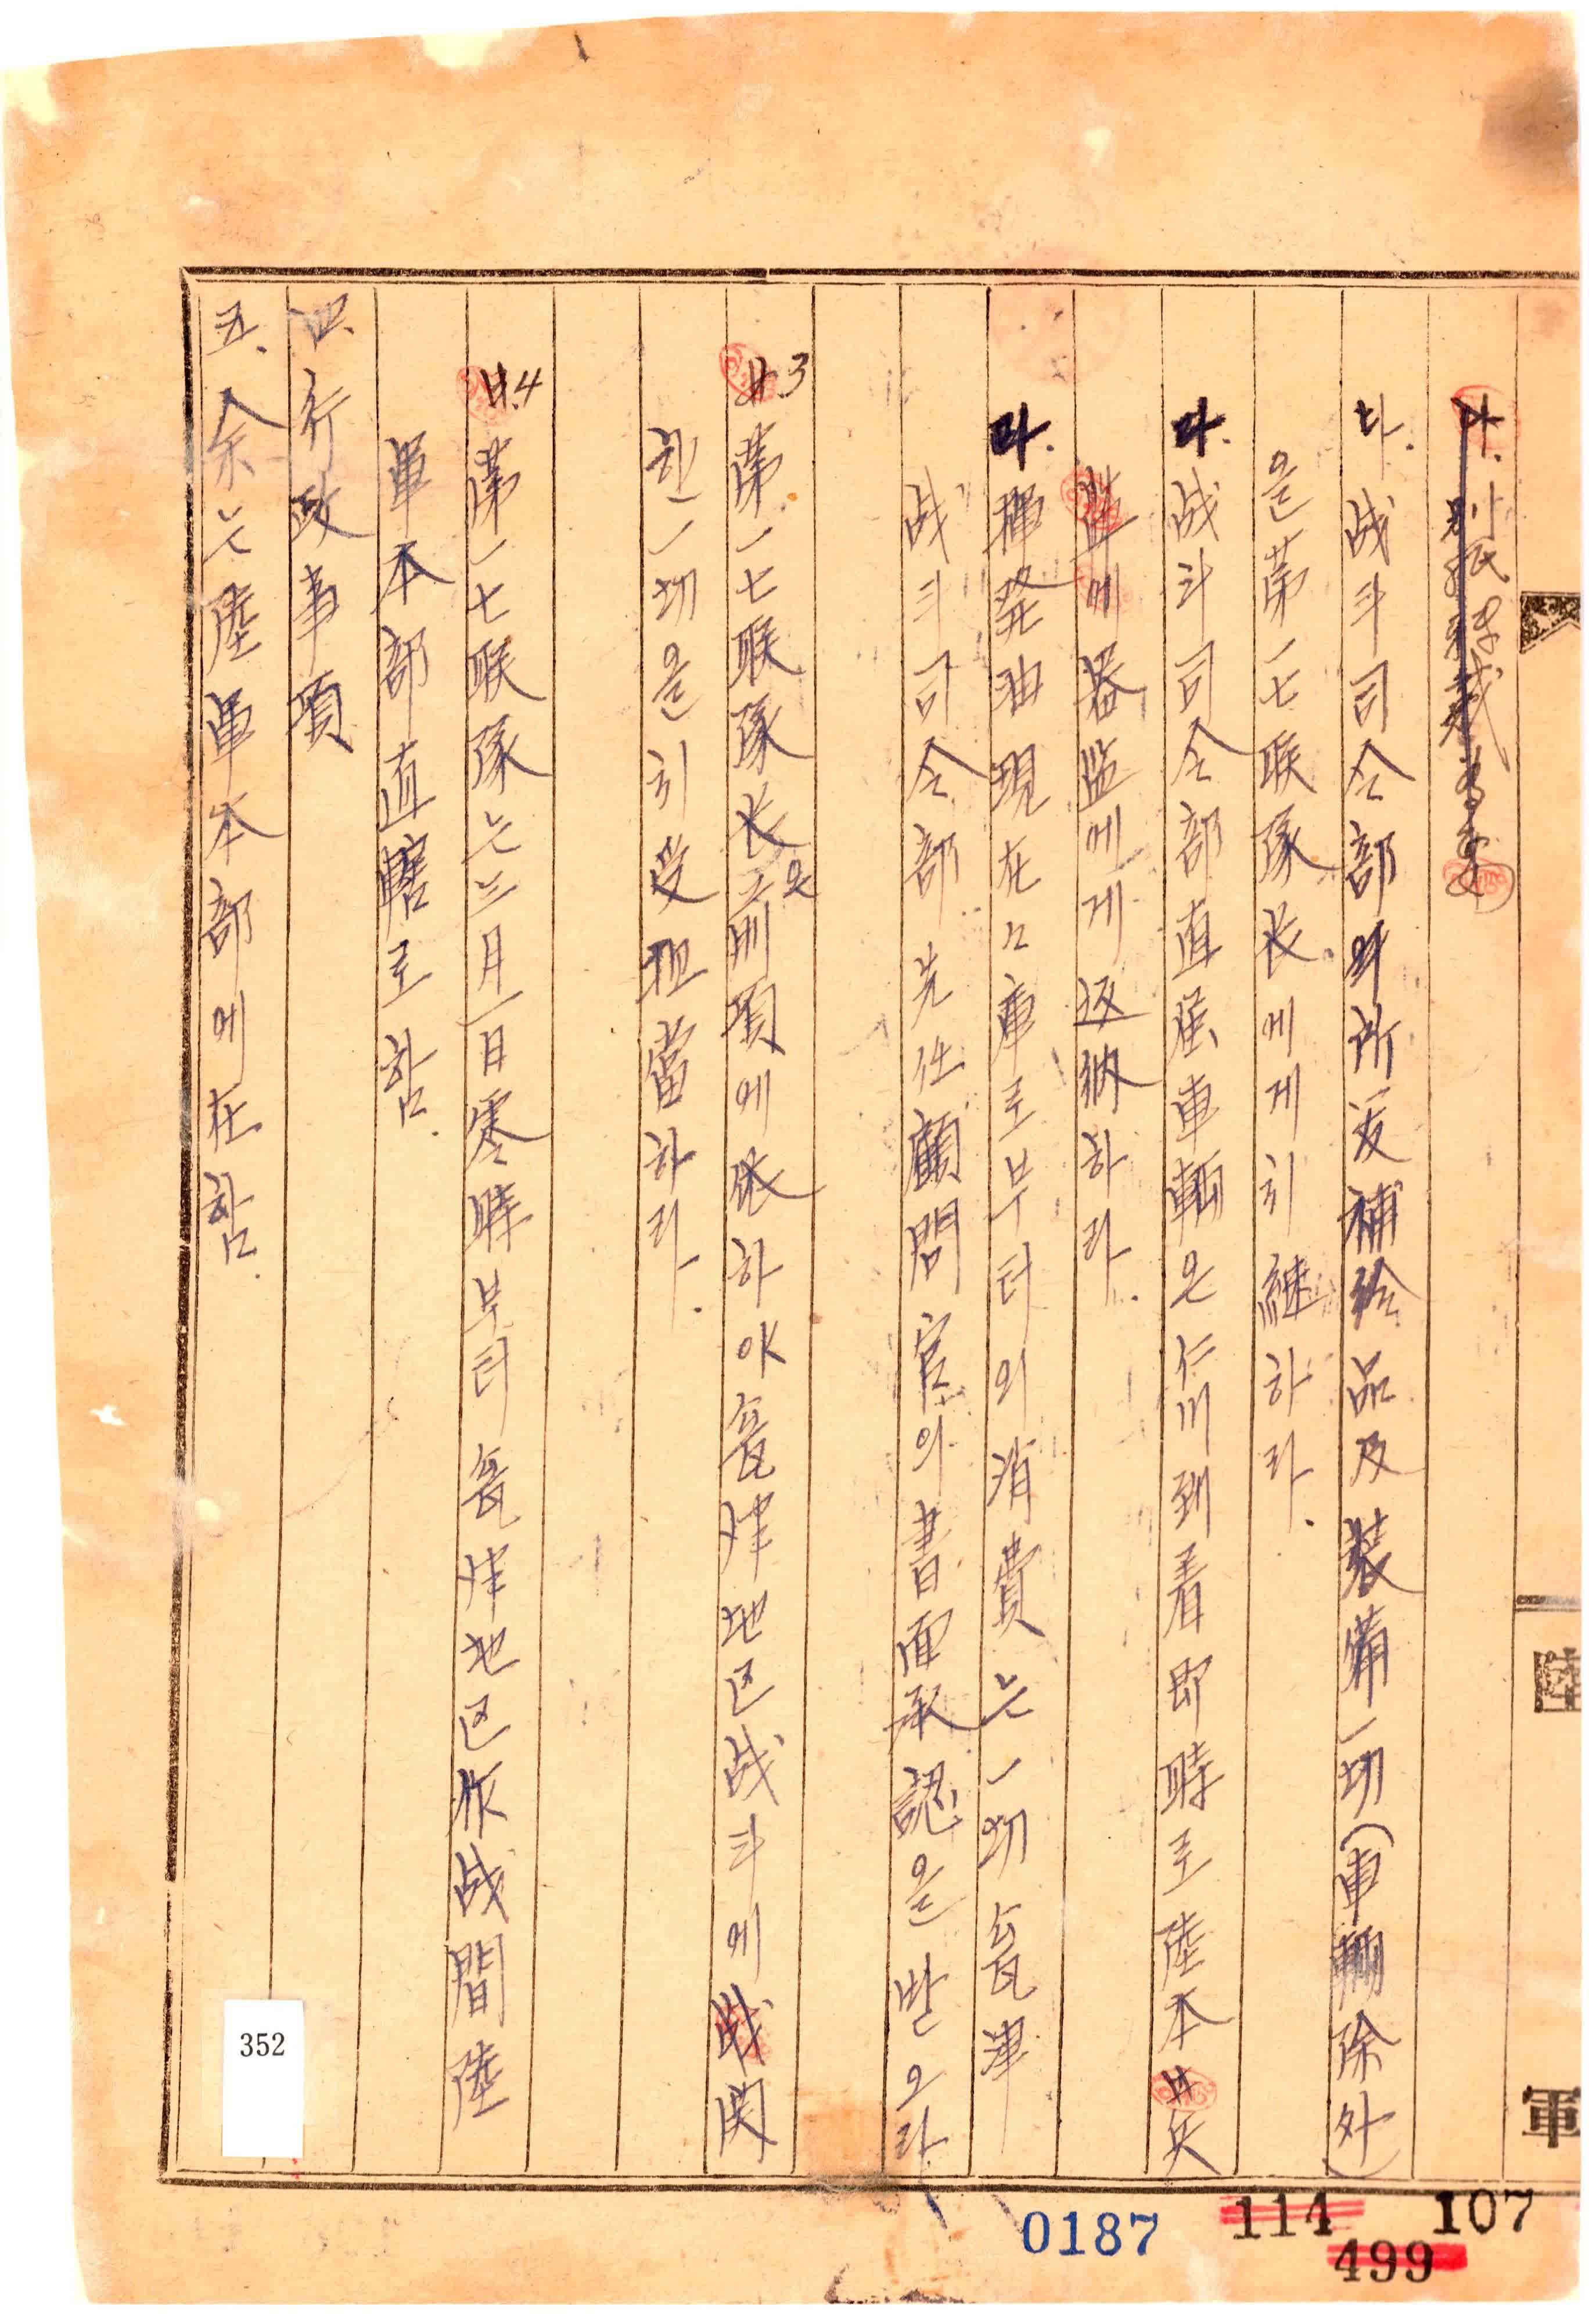 다. 战斗司令部의 所有 補給品 及 装備 一切(車輌 除外)
은 第一七联隊長에게 引継하라.
라. 战斗司令部 直属 車輌은 仁川 到着 即時로 陸本 兵
器監에게 返納하라.
마. 揮発油 現在 庫로부터의 消費는 一切 瓮津
战斗司令部 先任顧問官의 書面承認을 받으라
.3 第一七联隊長은 前項에 依하야 瓮津地区战斗에 関
한 一切을 引受 担當하라.
.4 第一七联隊는 三月一日 零時부터 瓮津地区作战間 陸
軍本部 直轄로 함.
四. 行政事項
五. 余는 陸軍本部에 在함.
陸
軍
352
0187
114
107
499